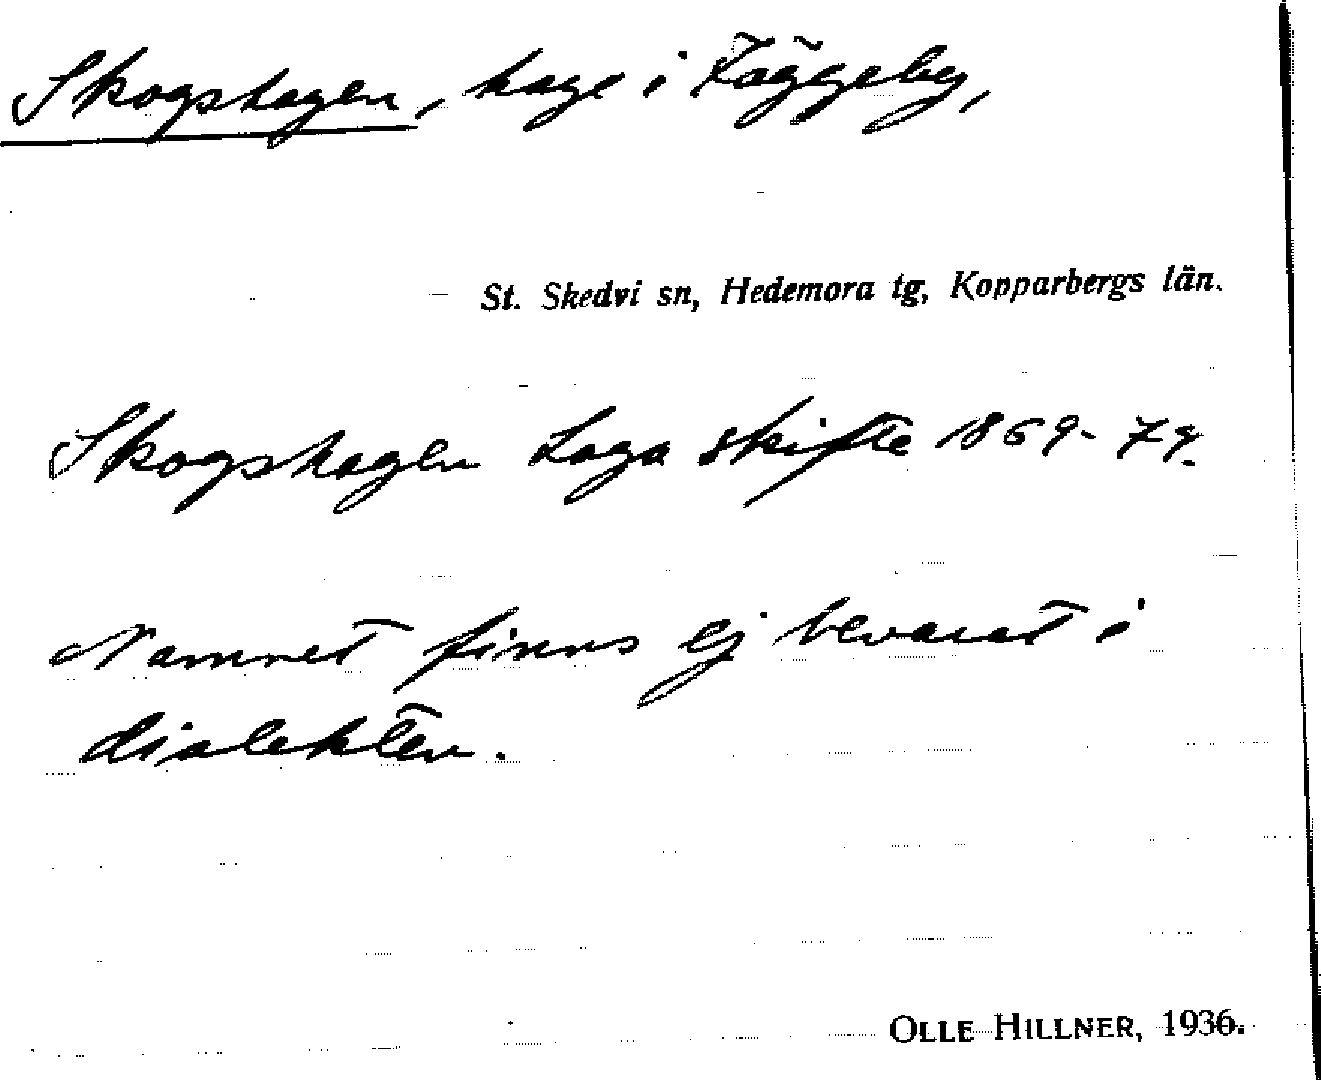 Skogshagen, hage i Täggeby,
St. Skedvi sn, Hedemora tg, Kopparbergs län.
Skogshagen Laga skifte 1869-79.
Namnet finns ej bevarat i
dialekten.
OLLE HILLNER, 1936.